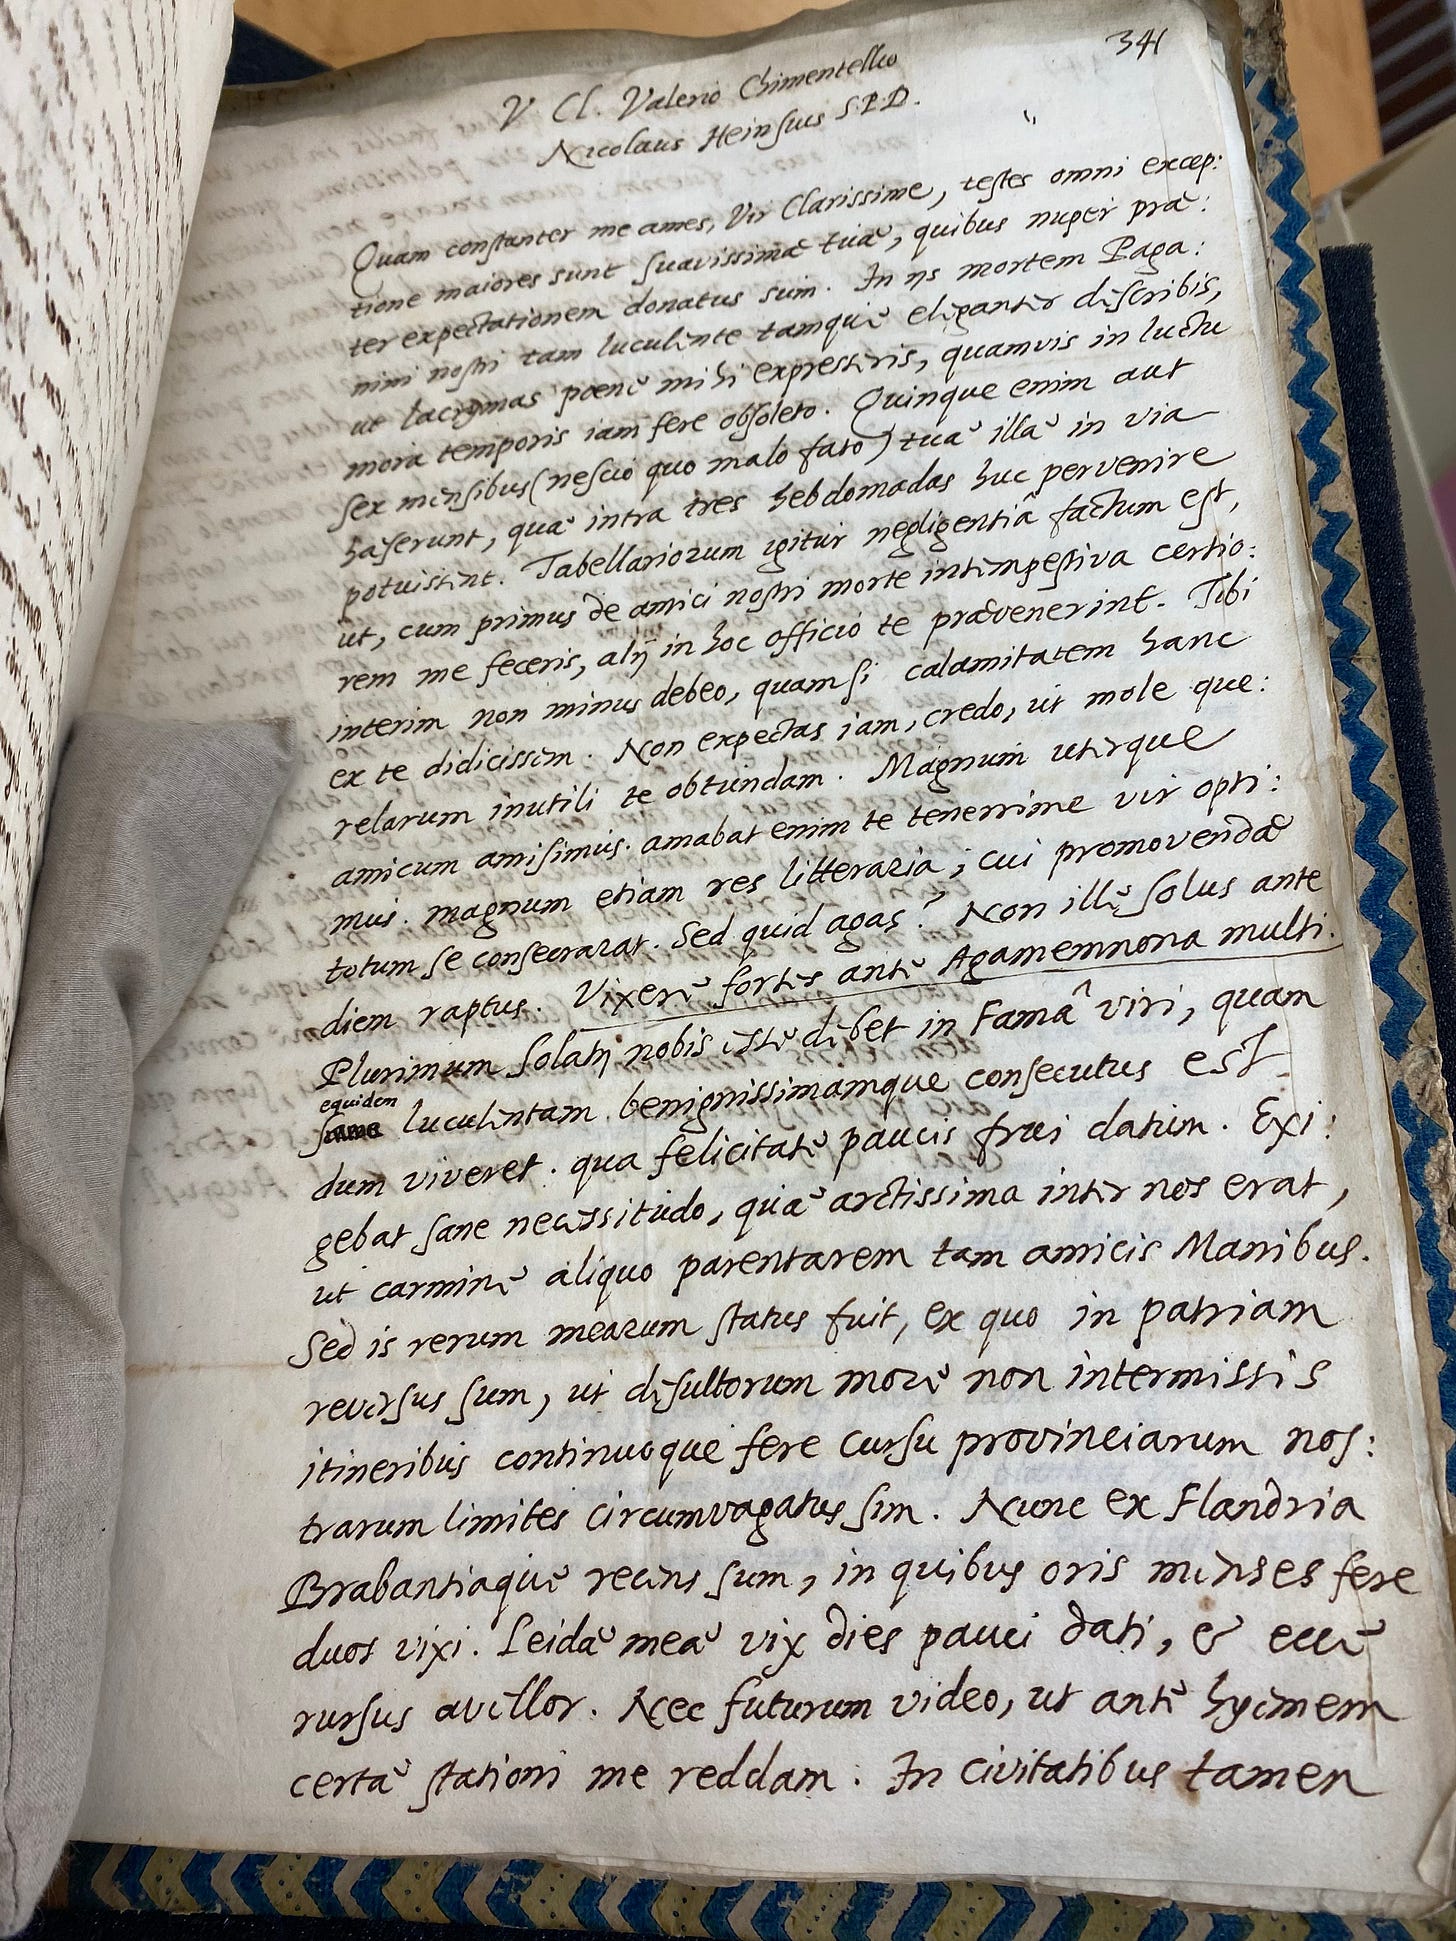 341
V. Cl. Valerio Chimentellio
Nicolaus Heinsius S.P.D.
Quam constanter me ames, Vir Clarissime, testes omni excep:
tione maiores sunt suavissimæ tuæ, quibus nuper præ:
ter expectationem donatus sum. In ijs mortem Paga:
nini nostri tam luculente tamque eleganter describis,
ut lacrymas pœne mihi expresseris, quamvis in luctu
mora temporis iam fere obsoleto. Quinque enim aut
sex mensibus (nescio quo malo fato) tuæ illæ in via
hæserunt, quæ intra tres hebdomadas huc pervenire
potuissent. Tabellariorum igitur negligentiâ factum est,
ut, cum primus de amici nostri morte intempestiva certio:
rem me feceris, alij in hoc officio te prævenerint. Tibi
interim non minus debeo, quam si calamitatem hanc
ex te didicissem. Non expectas iam, credo, ut mole que:
relarum inutili te obtundam. Magnum uterque
amicum amisimus. amabat enim te tenerrime vir opti:
mus. magnum etiam res litteraria, cui promovendæ
totum se consecrarat. Sed quid agas? Non ille solus ante
diem raptus. Vixere fortes ante Agamemnona multi.
Plurimum solatij nobis esse debet in Famâ viri, quam
equidem
luculentam benignissimamque consecutus est
dum viveret. qua felicitate paucis frui datum. Exi:
gebat sane necessitudo, quæ arctissima inter nos erat,
ut carmine aliquo parentarem tam amicis Manibus.
Sed is rerum mearum status fuit, ex quo in patriam
reversus sum, ut desultorum more non intermissis
itineribus continuoque fere cursu provinciarum nos:
trarum limites circumvagatus sim. Nunc ex Flandria
Brabantiaque recens sum, in quibus oris menses fere
duos vixi. Leidæ meæ vix dies pauci dati, & ecce
rursus avellor. Nec futurum video, ut ante hyemem
certæ stationi me reddam. In civitatibus tamen